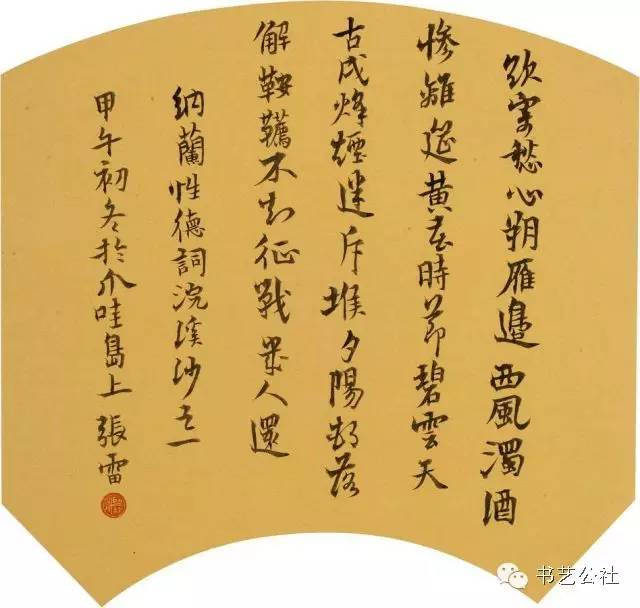 欲寄愁心朔雁邊西風濁酒
惨離筵黄花時節碧雲天
古戍烽煙迷斥堠夕陽邨落
解鞍韉不知征戰幾人還
納蘭性德詞浣溪沙之一
甲午初冬於爪哇島上 張雷
书艺公社